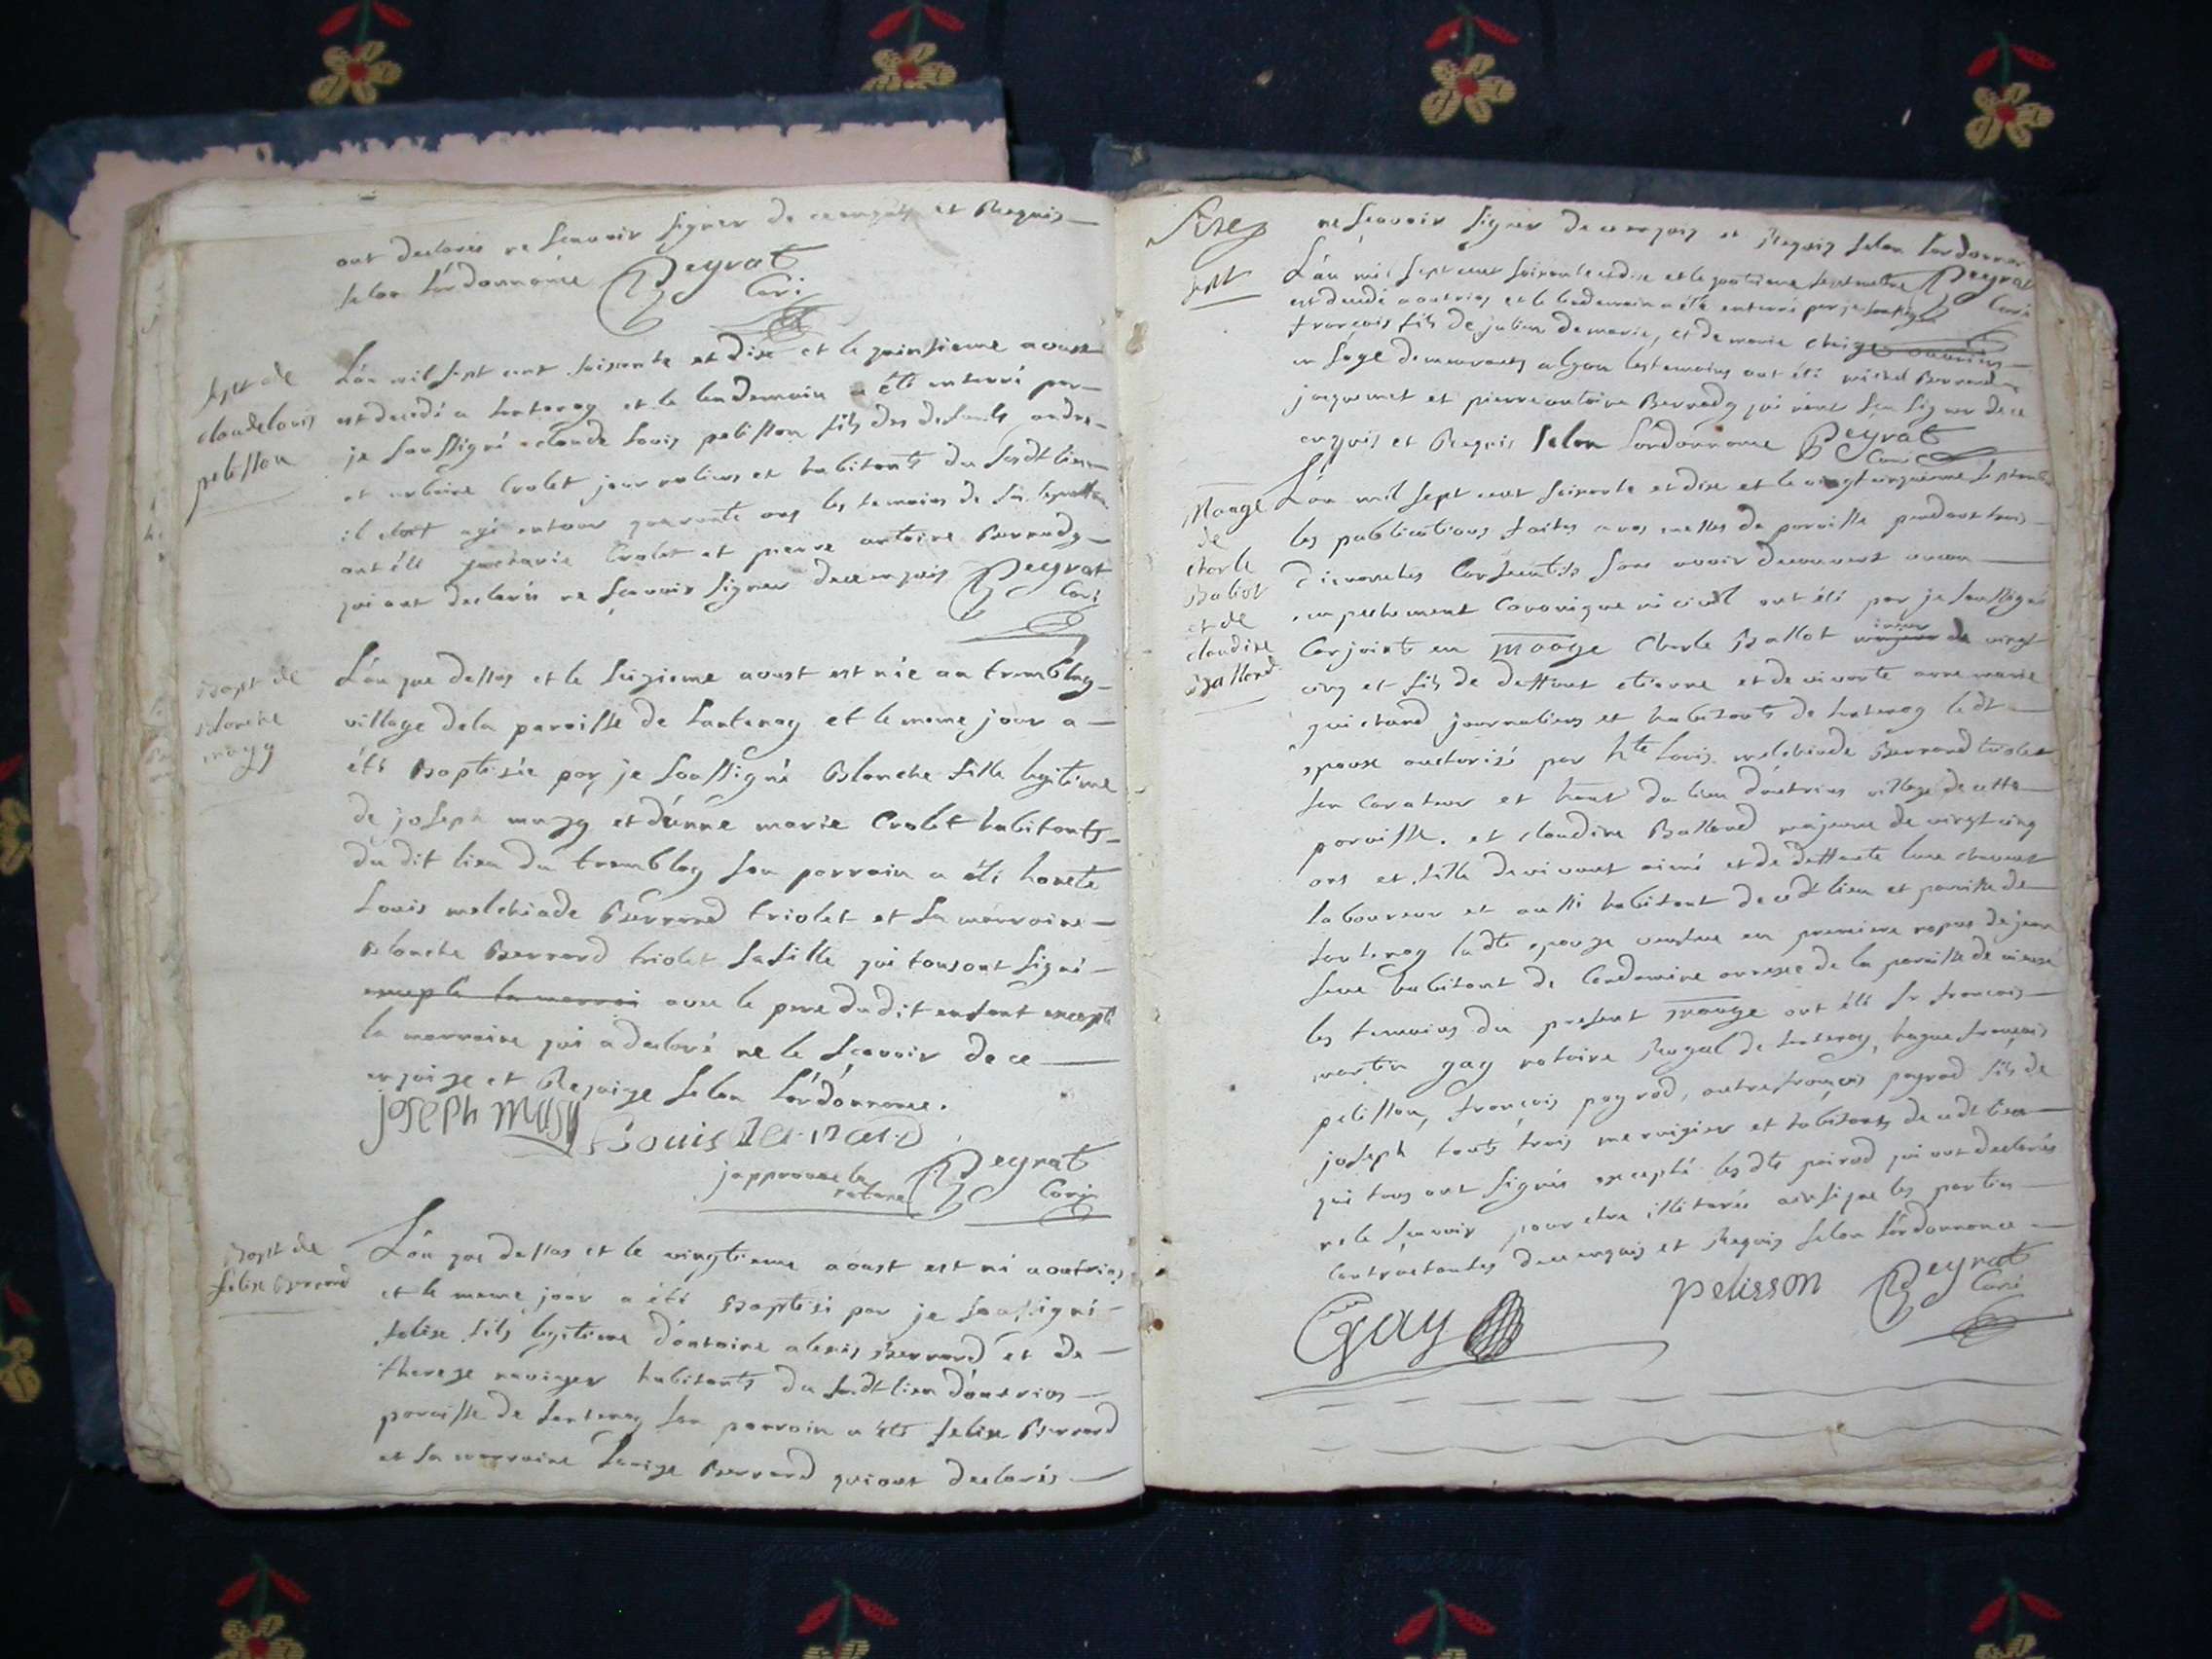 ont declarés ne scavoir signer de ce enquis et Requis
selon l'ordonnance Peyrat
Curé
Sept de
claude louis
pelisson
L'an mil sept cent soixante et dix et le quinsieme aoust
est decedé a lantenay et le lendemain a été enterré par
je soussigné claude Louis pelisson fils des defunts andre
et Crolet journaliers et habitants du susdt lieu
il etoit agé entour quarante ans les temoins de sa sepulture
ont été Crolet et pierre antoine Bernard
qui ont declarés ne scavoir signer de ce enquis Peyrat
Curé
Bapt de
blanche
mugy
L'an que dessus et le seizieme aoust est née au tremblay
village de la paroisse de Lantenay et le meme jour a
été Baptisée par je soussigné Blanche fille legitime
de joseph mugy et d'anne marie Crolet habitants
du dit lieu du tremblay son parrain a été honete
Louis melchiade Bernard triolet et sa marraine
Blanche Bernard triolet sa fille qui tous ont signé
excepte la marrai avec le pere du dit enfant excepté
la marraine qui a declaré ne le scavoir de ce
enquise et Requise selon l'ordonnance.
joseph
Louis Bernard
japprouve la
rature Peyrat
Curé
Bapt de
felix Bernard
L'an que dessus et le vingtieme aoust est né a outrias
et le meme jour a été Baptisé par je soussigné
felix fils legitime d'antoine alexis Bernard et de
therese habitants du susdt lieu d'outrias
paroisse de Lantenay son parrain a été felix Bernard
et sa marraine Bernard qui ont declarés
ne scavoir signer de ce enquis et Requis selon l'ordonnance
Sept
L'an mil sept cent soixante et dix et le septembre Peyrat
Curé
est decedé a outrias et le lendemain a été enterré par je soussigné
françois fils de et de marie
demeurants a lyon les temoins ont été michel Bernard
jaquemet et pierre antoine Bernard qui n'ont sçu signer de ce
enquis et Requis selon l'ordonnance Peyrat
Curé
Maage
de
charle
Balot
et de
claudine
Balland
L'an mil sept cent soixante et dix et le vingt cinquieme septembre
les publications faites a nos messes de paroisse pendant trois
dimanches Consecutifs sans avoir decouvert aucun
empechement Canonique ni civil ont été par je soussigné
Conjoints en maage Charle Ballot mineur de vingt
cinq et fils de deffunt etienne et de vivante anne marie
guichard journaliers et habitants de lantenay ledt
epoux authorisé par hte Louis melchiade Bernard triolet
son Curateur et du lieu d'outrias village de cette
paroisse. et claudine Balland majeure de vingt cinq
ans et fille de vivant aimé et de deffunte
laboureur et aussi habitant de cedt lieu et paroisse de
lantenay ladte epouse veufve en premiere nopce de jean
habitant de Condamine annexe de la paroisse de
les temoins du present maage ont été sr françois
martin gay notaire Royal de lantenay, françois
pelisson, françois payrod, autre françois payrod fils de
joseph touts trois et habitants de cedt lieu
qui tous ont signés excepté les dts pairod qui ont declarés
ne le scavoir pour etre illiterés ainsi que les parties
Contractantes de ce enquis et Requis selon l'ordonnance
Gay
pelisson
Peyrat
Curé